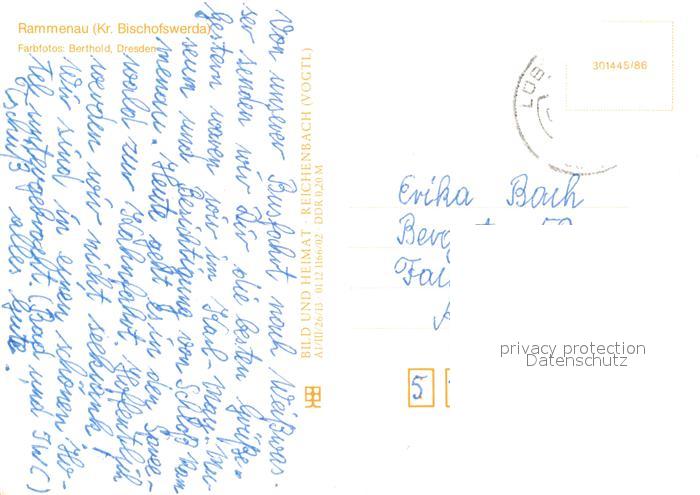 Rammenau (Kr. Bischofswerda)
Farbfotos: Berthold, Dresden
Von unserer Busfahrt nach Weißwas-
ser senden wir Dir die besten Grüße.
Gestern waren wir im Karl-May-Mu-
seum und Besichtigung vom Schloß Ram
menau. Heute geht es in den Spree-
wald zur Kahnfahrt. Hoffentlich
werden wir nicht seekrank.
Wir sind in einem schönen Ho-
tel untergebracht. (Bad und IWC)
Tschüß alles Gute.
BILD UND HEIMAT · REICHENBACH (VOGTL)
A1/III/26/13 01 12 1166/02 DDR 0,20 M
301445/86
LÖB
Erika Bach
5
privacy protection
Datenschutz